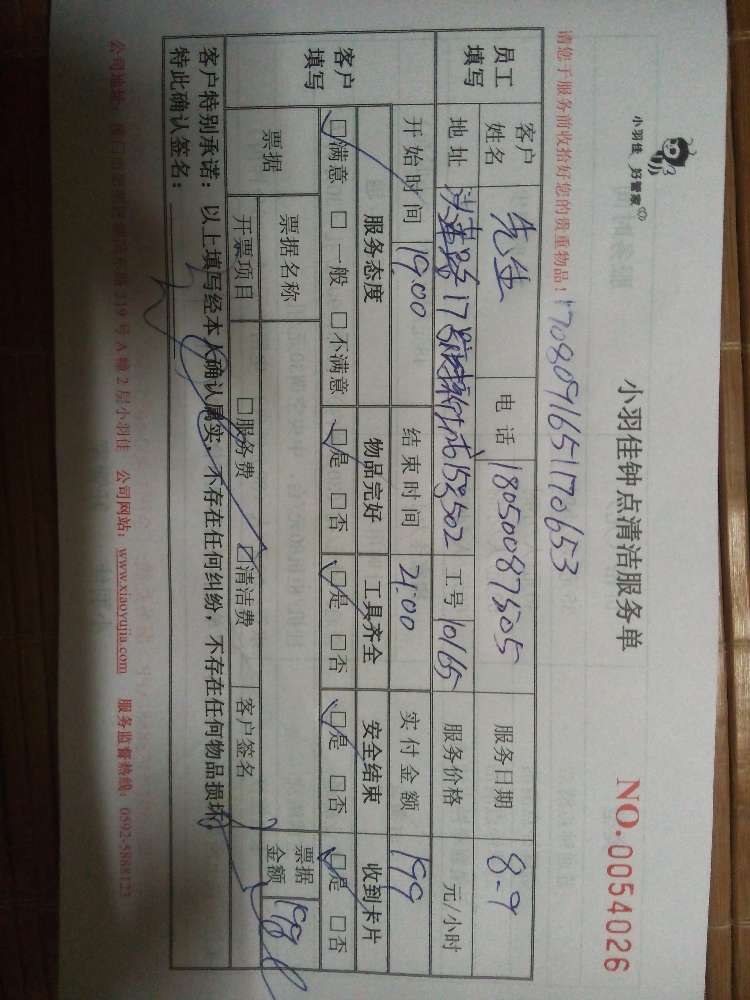 小羽佳 好管家
小羽佳钟点清洁服务单
NO.0054026
请您于服务前收拾好您的贵重物品！
1708091651170653
员工填写 客户姓名 先生 电话 18050087505 服务日期 8-9
地址 17 502 工号 10165 服务价格 元/小时
开始时间 19:00 结束时间 21:00 实付金额 199
客户填写 服务态度 物品完好 工具齐全 安全结束 收到卡片
☑满意 □一般 □不满意 ☑是 □否 ☑是 □否 ☑是 □否 ☑是 □否
票据 票据名称 票据金额 199
开票项目 □服务费 ☑清洁费 客户签名
客户特别承诺：以上填写经本人确认属实，不存在任何纠纷，不存在任何物品损坏，
特此确认签名：
公司地址： 319号A幢2层小羽佳 公司网站：www.xiaoyujia.com 服务监督热线：0592-5888123